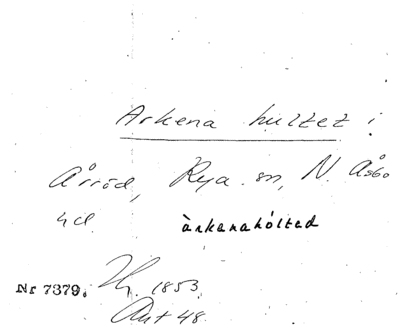 Arkena hultet i
Årröd, Rya sn, N. Åsbo
hd. àrkanahóltəd
Nr 7379. Hg. 1853
Ant 48